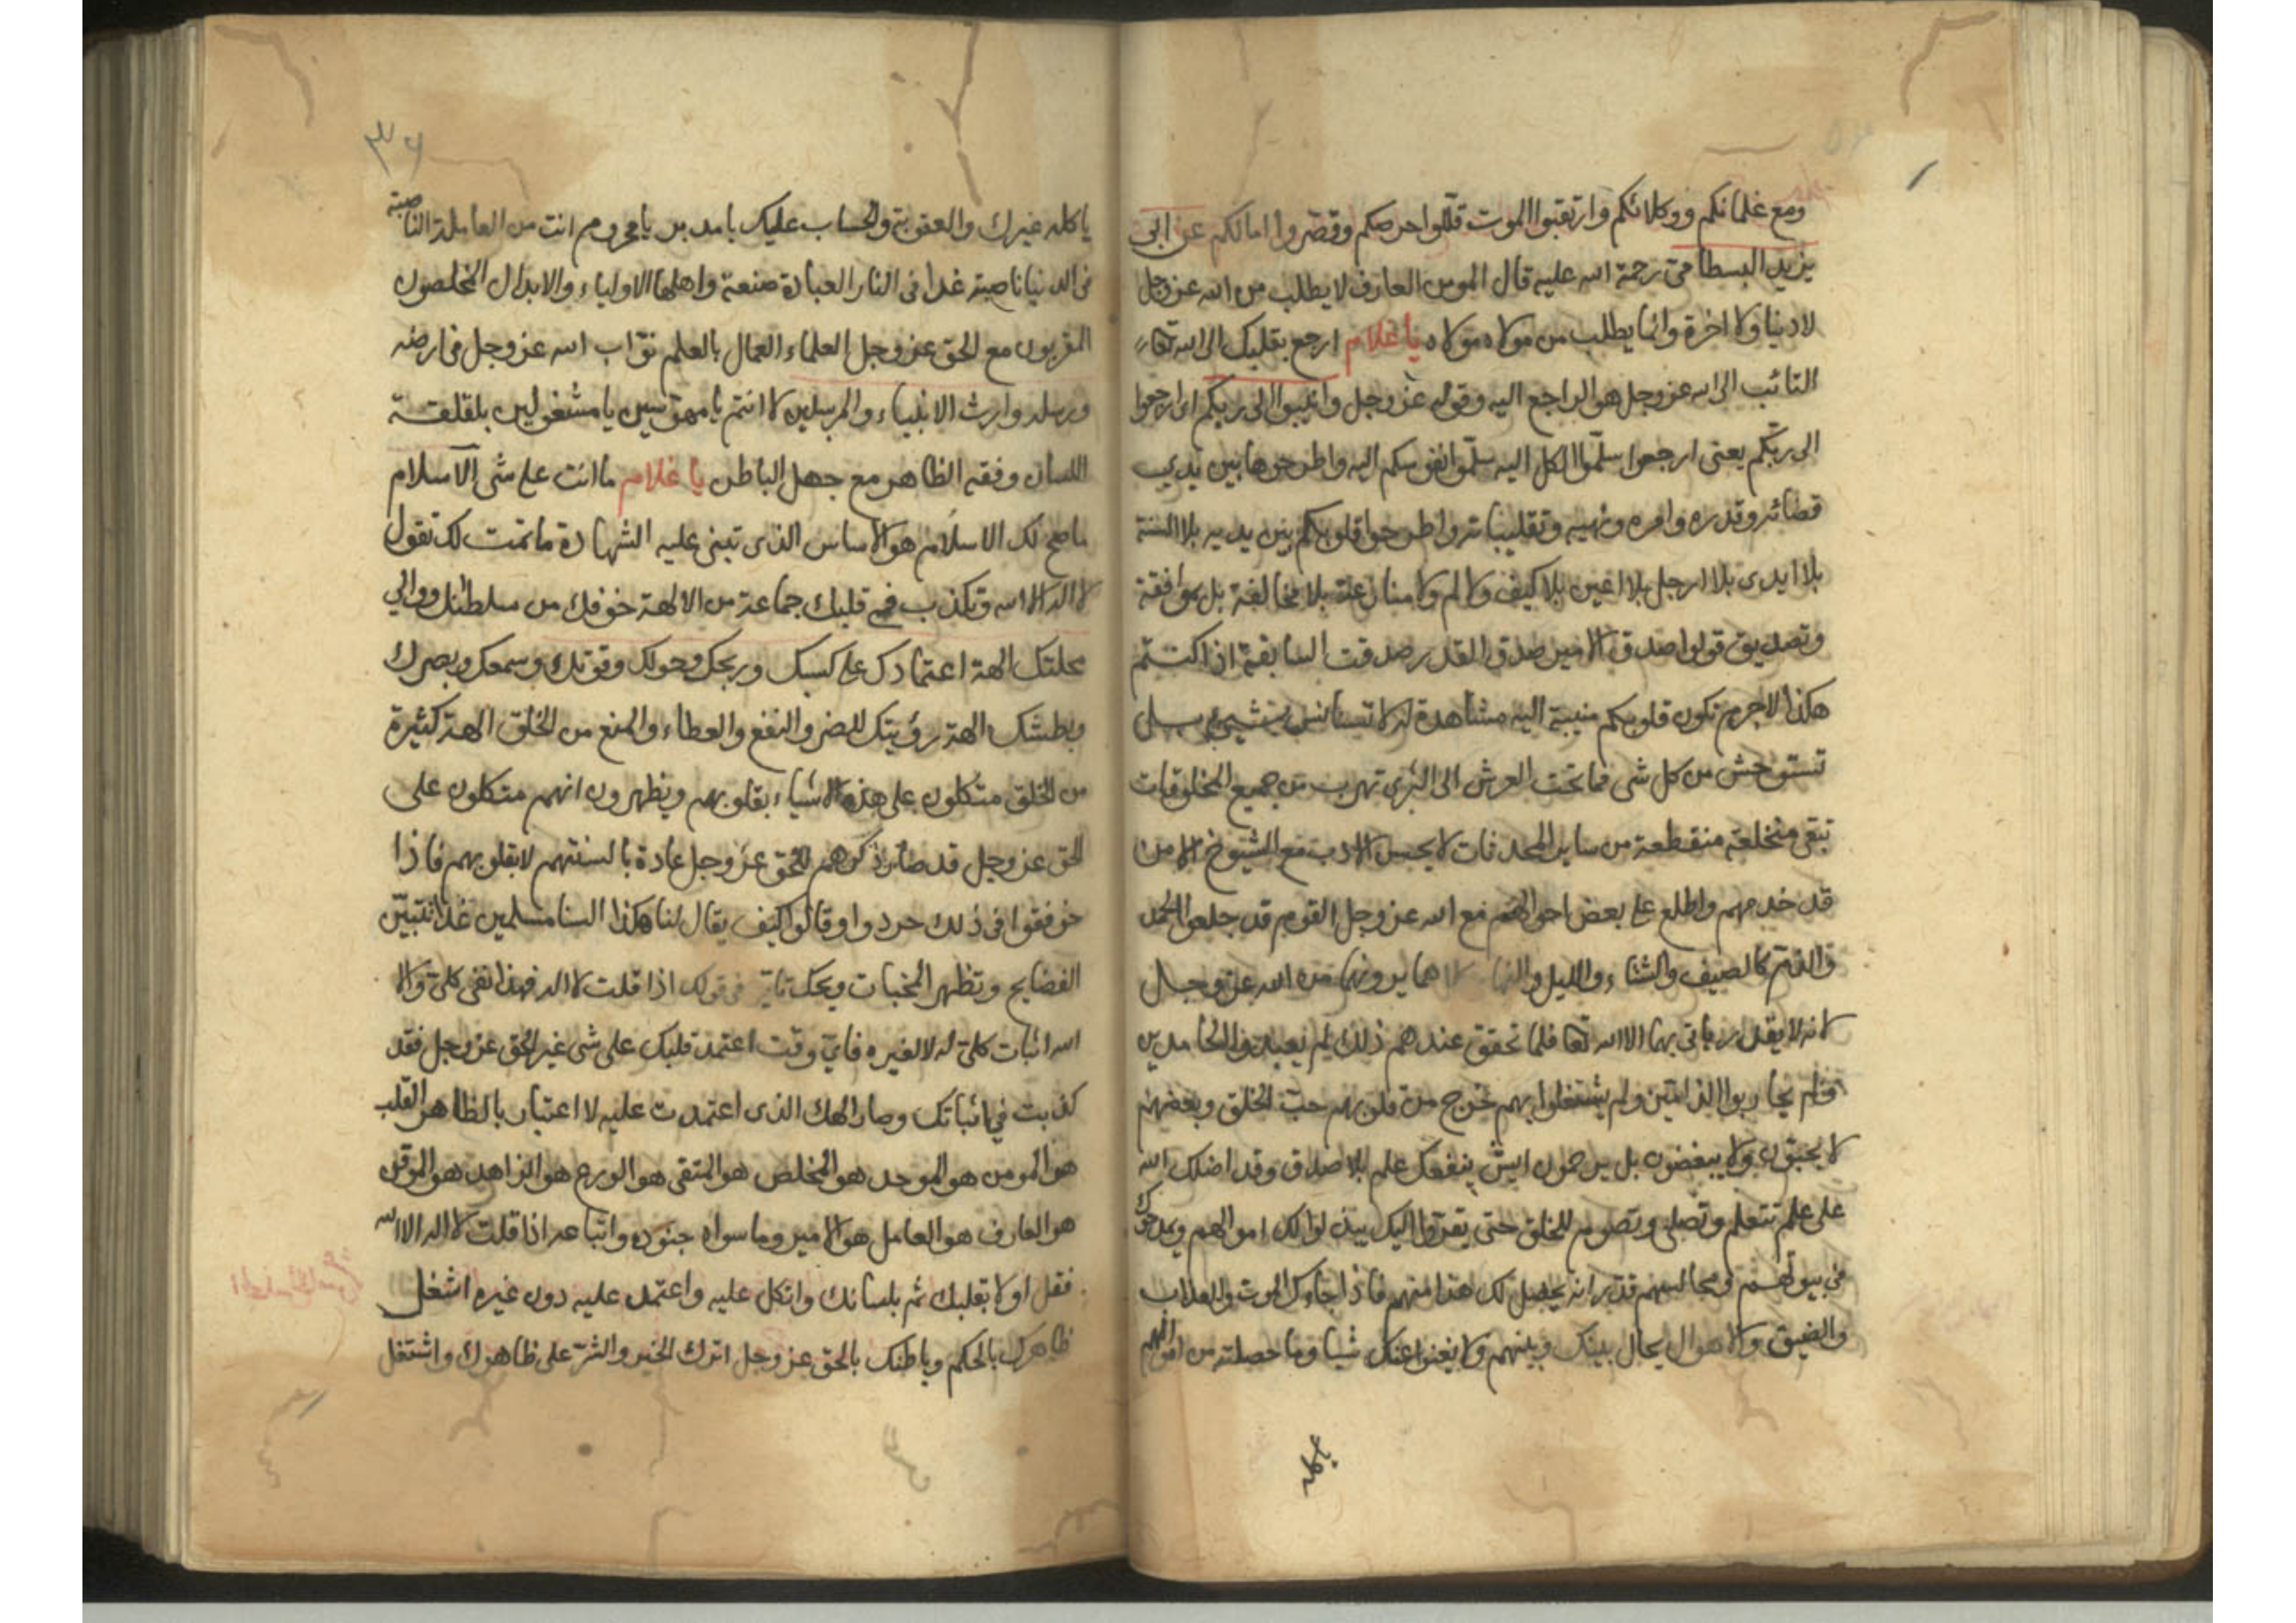 ومع غلمانكم ووكلائكم وارتقبوا الموت قللوا حرصكم وقصروا امالكم عن ابى
يزيد البسطامى رحمة الله عليه قال المومن العارف لا يطلب من الله عز وجل
لا دنيا ولا اخرة وانما يطلب من مولاه مولاه يا غلام ارجع بقلبك الى الله تعا
التائب الى الله عز وجل هو الراجع اليه وقوله عز وجل وانيبوا الى ربكم اى ارجعوا
الى ربكم يعنى ارجعوا سلموا الكل اليه سلموا نفوسكم اليه واطرحوها بين يدى
قضائه وقدره وامره ونهيه وتقليباته واطرحوا قلوبكم بين يديه بلا السنة
بلا ايدى بلا ارجل بلا اعين بلا كيف ولا لم ولا منازعة بلا مخالفة بل بموافقة
وتصديق قولوا صدق الامر صدق القدر صدقت السابقة اذا كنتم
هكذا لاجرم تكون قلوبكم منيبة اليه مشاهدة له لا تستانس بشيىء بل
تستوحش من كل شى مما تحت العرش الى الثرى تهرب من جميع المخلوقات
تبقى منخلعة منقطعة من ساير المحدثات لا يحسن الادب مع الشيوخ الا من
قد خدمهم واطلع على بعض احوالهم مع الله عز وجل القوم قد جعلوا الحمد
والذم كالصيف والشتاء والليل والنهار كلاهما يرونهما من الله عز وجل
لانه لا يقدر ياتى بهما الا الله تعا فلما تحقق عندهم ذلك لم يعبدوا الحامدين
ولم يحاربوا الذامين ولم يشتغلوا بهم خرج من قلوبهم حب الخلق وبغضهم
لا يحبون ولا يبغضون بل يرحمون ايش ينفعك علم بلا صدق وقد اضلك الله
على علم تتعلم وتصلى وتصوم للخلق حتى يقربوا اليك يبذلوا لك اموالهم ويمدحوك
فى بيوتهم ومجالسهم قدر انه يحصل لك هذا منهم فاذا جاءك الموت والعذاب
والضيق والاهوال يحال بينك وبينهم ولا يغنوا عنك شيا وما حصلته من اموالهم
ياكله
٣٦
ياكله غيرك والعقوبة والحساب عليك يا مدبر يا محروم انت من العاملة الناصبة
فى الدنيا ناصبة غدا فى النار العبادة صنعة واهلها الاولياء والابدال المخلصون
المقربون مع الحق عز وجل العلماء العمال بالعلم نواب الله عز وجل فى ارضه
ورسله وارث الانبياء والمرسلين لا انتم يا مهوسين يا مشغولين بلقلقة
اللسان وفقه الظاهر مع جهل الباطن يا غلام ما انت على شى الاسلام
ما صح لك الاسلام هو الاساس الذى تبنى عليه الشهادة ما تمت لك تقول
لا اله الا الله وتكذب فى قلبك جماعة من الالهة خوفك من سلطانك ووالى
محلتك الهة اعتمادك على كسبك وربحك وحولك وقوتك وسمعك وبصرك
وبطشك الهة رؤيتك للضر والنفع والعطاء والمنع من الخلق الهة كثيرة
من الخلق متكلون على هذه الاشياء بقلوبهم ويظهرون انهم متكلون على
الحق عز وجل قد صار ذكرهم للحق عز وجل عادة بالسنتهم لا بقلوبهم فاذا
حوققوا فى ذلك حردوا وقالوا كيف يقال لنا هكذا السنا مسلمين غدا تتبين
الفضايح وتظهر المخبات ويحك تاين فى قولك اذا قلت لا اله فهذا نفى كلى والا
الله اثبات كلى له لا لغيره فاى وقت اعتمد قلبك على شى غير الحق عز وجل فقد
كذبت فى اثباتك وصار الهك الذى اعتمدت عليه لا اعتبار بالظاهر القلب
هو المومن هو الموحد هو المخلص هو المتقى هو الورع هو الزاهد هو الموقن
هو العارف هو العامل هو الامير وما سواه جنوده واتباعه اذا قلت لا اله الا الله
فقل اولا بقلبك ثم بلسانك واتكل عليه واعتمد عليه دون غيره اشغل
ظاهرك بالحكم وباطنك بالحق عز وجل اترك الخير والشر على ظاهرك واشتغل